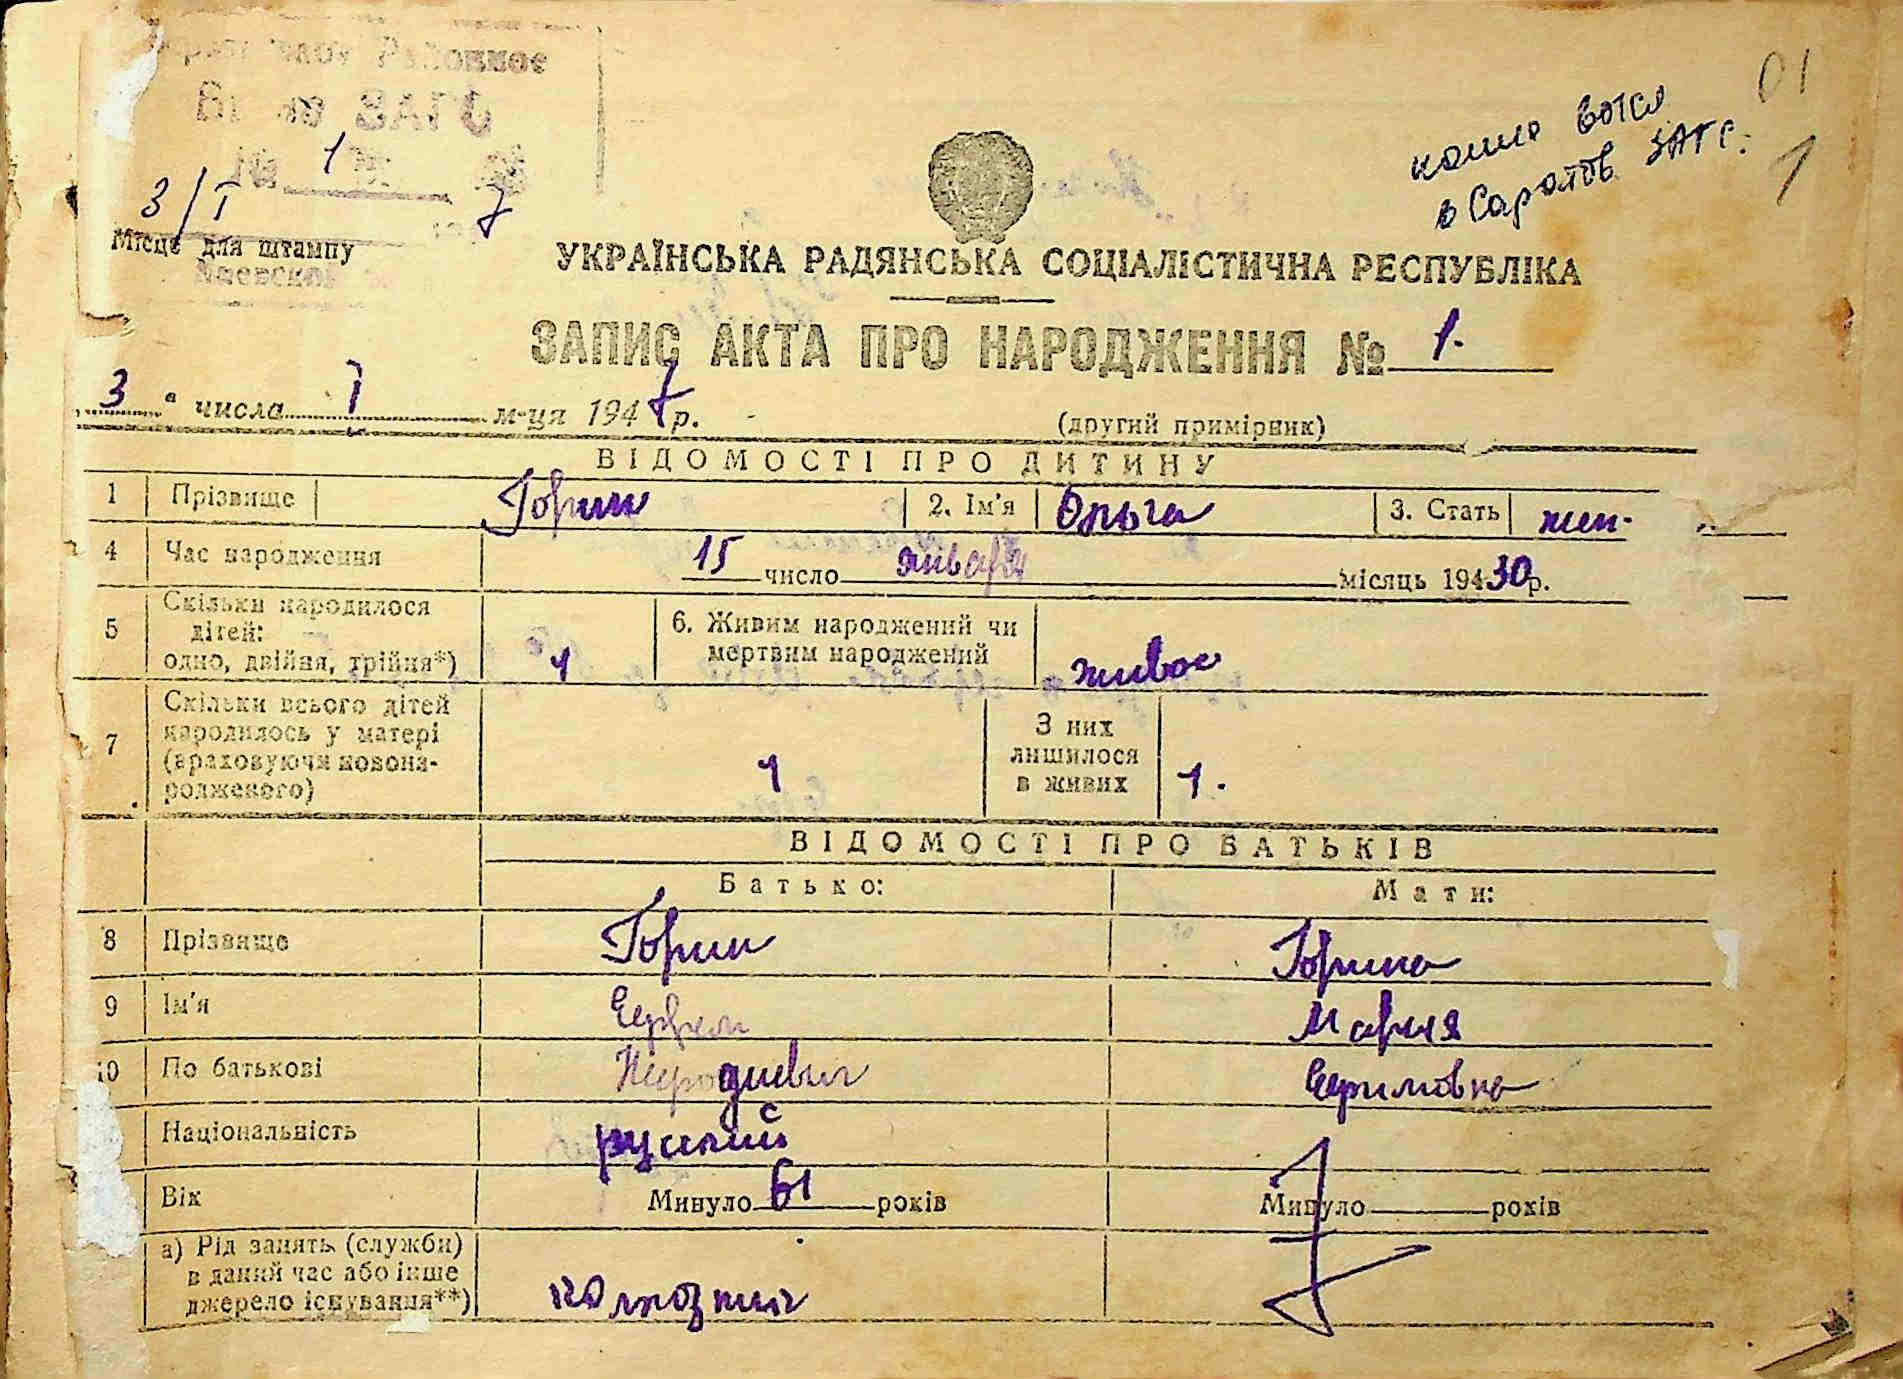 Районное
ЗАГС
№ 1
3/I 7
Місце для штампу
01
1
в Саратов ЗАГС.
УКРАЇНСЬКА РАДЯНСЬКА СОЦІАЛІСТИЧНА РЕСПУБЛІКА
ЗАПИС АКТА ПРО НАРОДЖЕННЯ № 1.
3 " числа I м-ця 1947 р.
(другий примірник)
ВІДОМОСТІ ПРО ДИТИНУ
1 Прізвище Горин 2. Ім'я Ольга 3. Стать жен.
4 Час народження 15 число января місяць 194 30 р.
5 Скільки народилося дітей: одно, двійня, трійня*) 1 6. Живим народжений чи мертвим народжений живое
7 Скільки всього дітей народилось у матері (враховуючи новонародженого) 1 З них лишилося в живих 1.
ВІДОМОСТІ ПРО БАТЬКІВ
Батько: Мати:
8 Прізвище Горин Горина
9 Ім'я Ефрем Мария
10 По батькові Ефимовна
Національність русский
Вік Минуло 61 років Минуло років
а) Рід занять (служби) в даний час або інше джерело існування**) колхозник